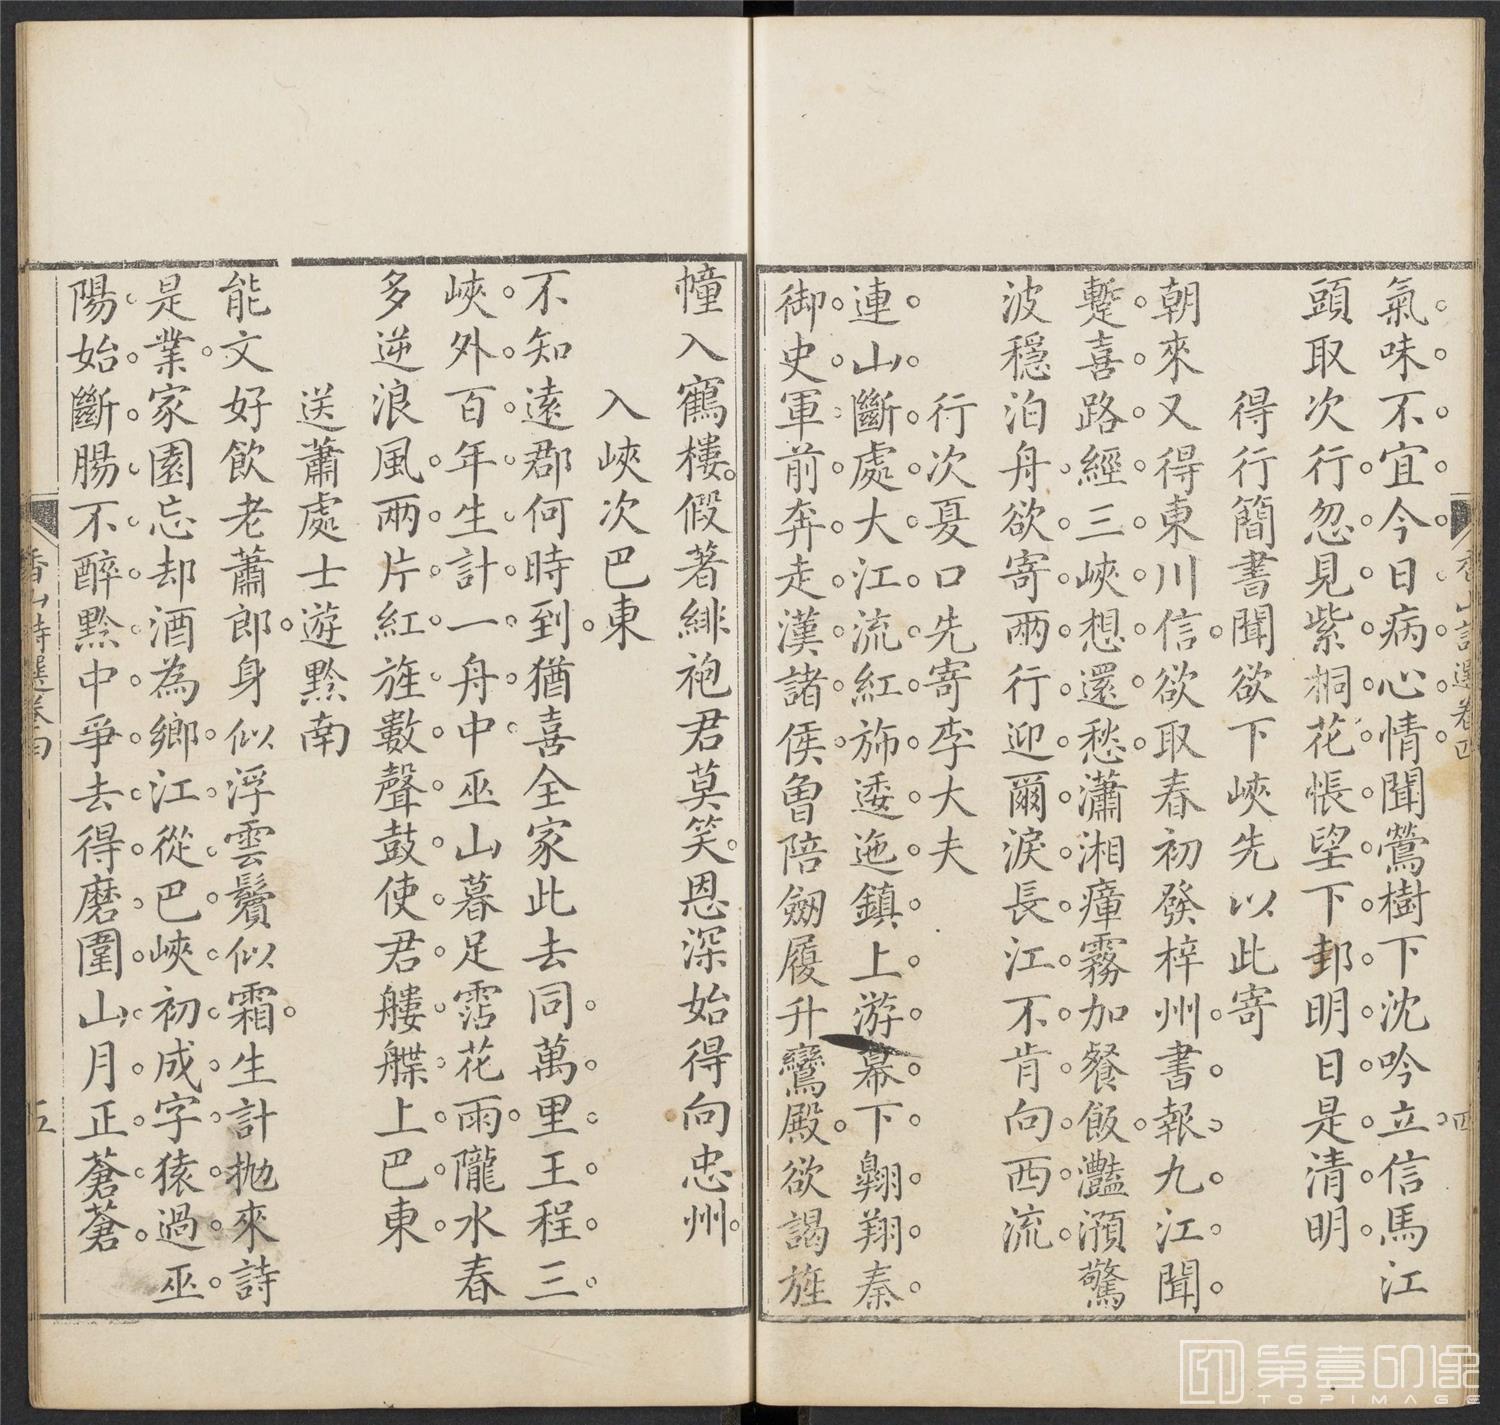 氣味不宜今日病心情聞鶯樹下沈吟立信馬江
頭取次行忽見紫桐花悵望下邽明日是清明
得行簡書聞欲下峽先以此寄
朝來又得東川信欲取春初發梓州書報九江聞
蹔喜路經三峽想還愁瀟湘瘴霧加餐飯灩澦驚
波穩泊舟欲寄兩行迎爾淚長江不肯向西流
行次夏口先寄李大夫
連山斷處大江流紅斾逶迤鎮上游幕下翺翔秦
御史軍前奔走漢諸侯曾陪劒履升鸞殿欲謁旌
幢入鶴樓假著緋袍君莫笑恩深始得向忠州
入峽次巴東
不知遠郡何時到猶喜全家此去同萬里王程三
峽外百年生計一舟中巫山暮足霑花雨隴水春
多逆浪風兩片紅旌數聲鼓使君艛艓上巴東
送蕭處士遊黔南
能文好飲老蕭郎身似浮雲鬢似霜生計抛來詩
是業家園忘却酒為鄉江從巴峽初成字猿過巫
陽始斷腸不醉黔中爭去得磨圍山月正蒼蒼
香山詩選卷四
四
香山詩選卷四
五
第壹印像
TOPIMAGE